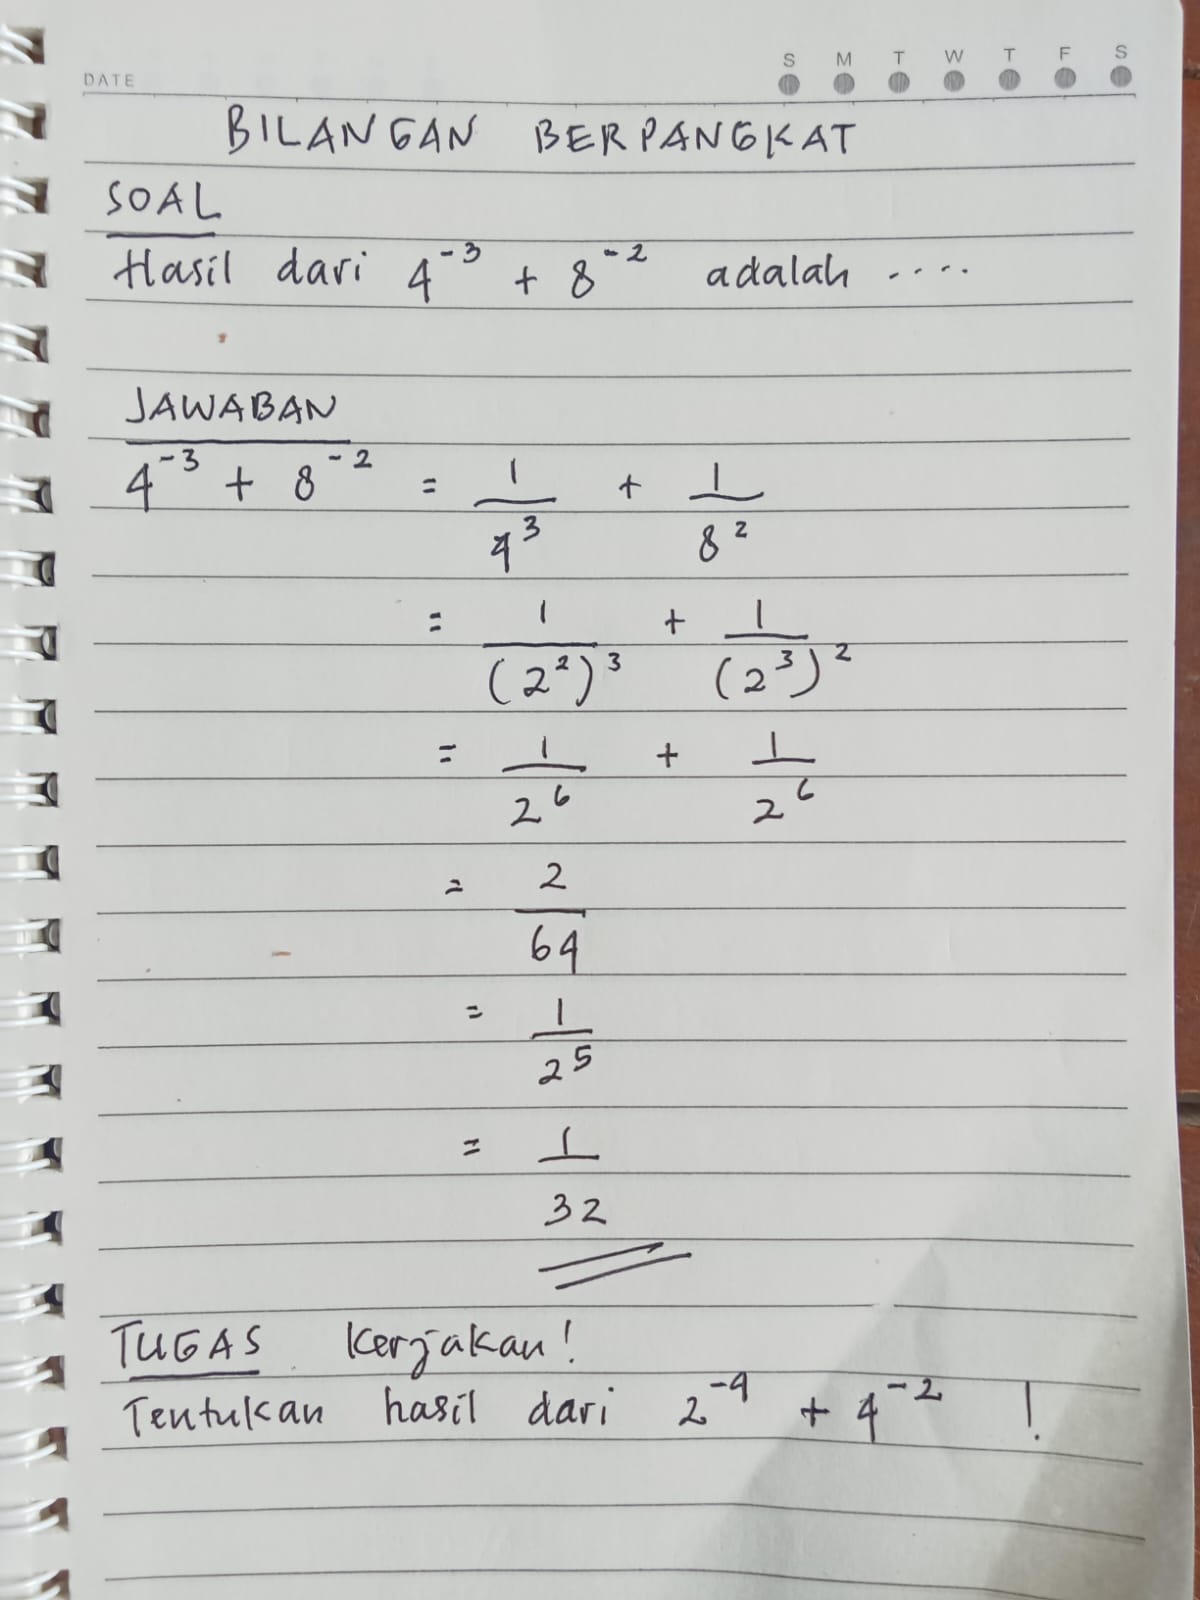 S M T W T F S
DATE
BILANGAN BERPANGKAT
SOAL
Hasil dari 4⁻³ + 8⁻² adalah ....
JAWABAN
4⁻³ + 8⁻² = 1/4³ + 1/8²
= 1/(2²)³ + 1/(2³)²
= 1/2⁶ + 1/2⁶
= 2/64
= 1/2⁵
= 1/32
TUGAS Kerjakan!
Tentukan hasil dari 2⁻⁴ + 4⁻² !